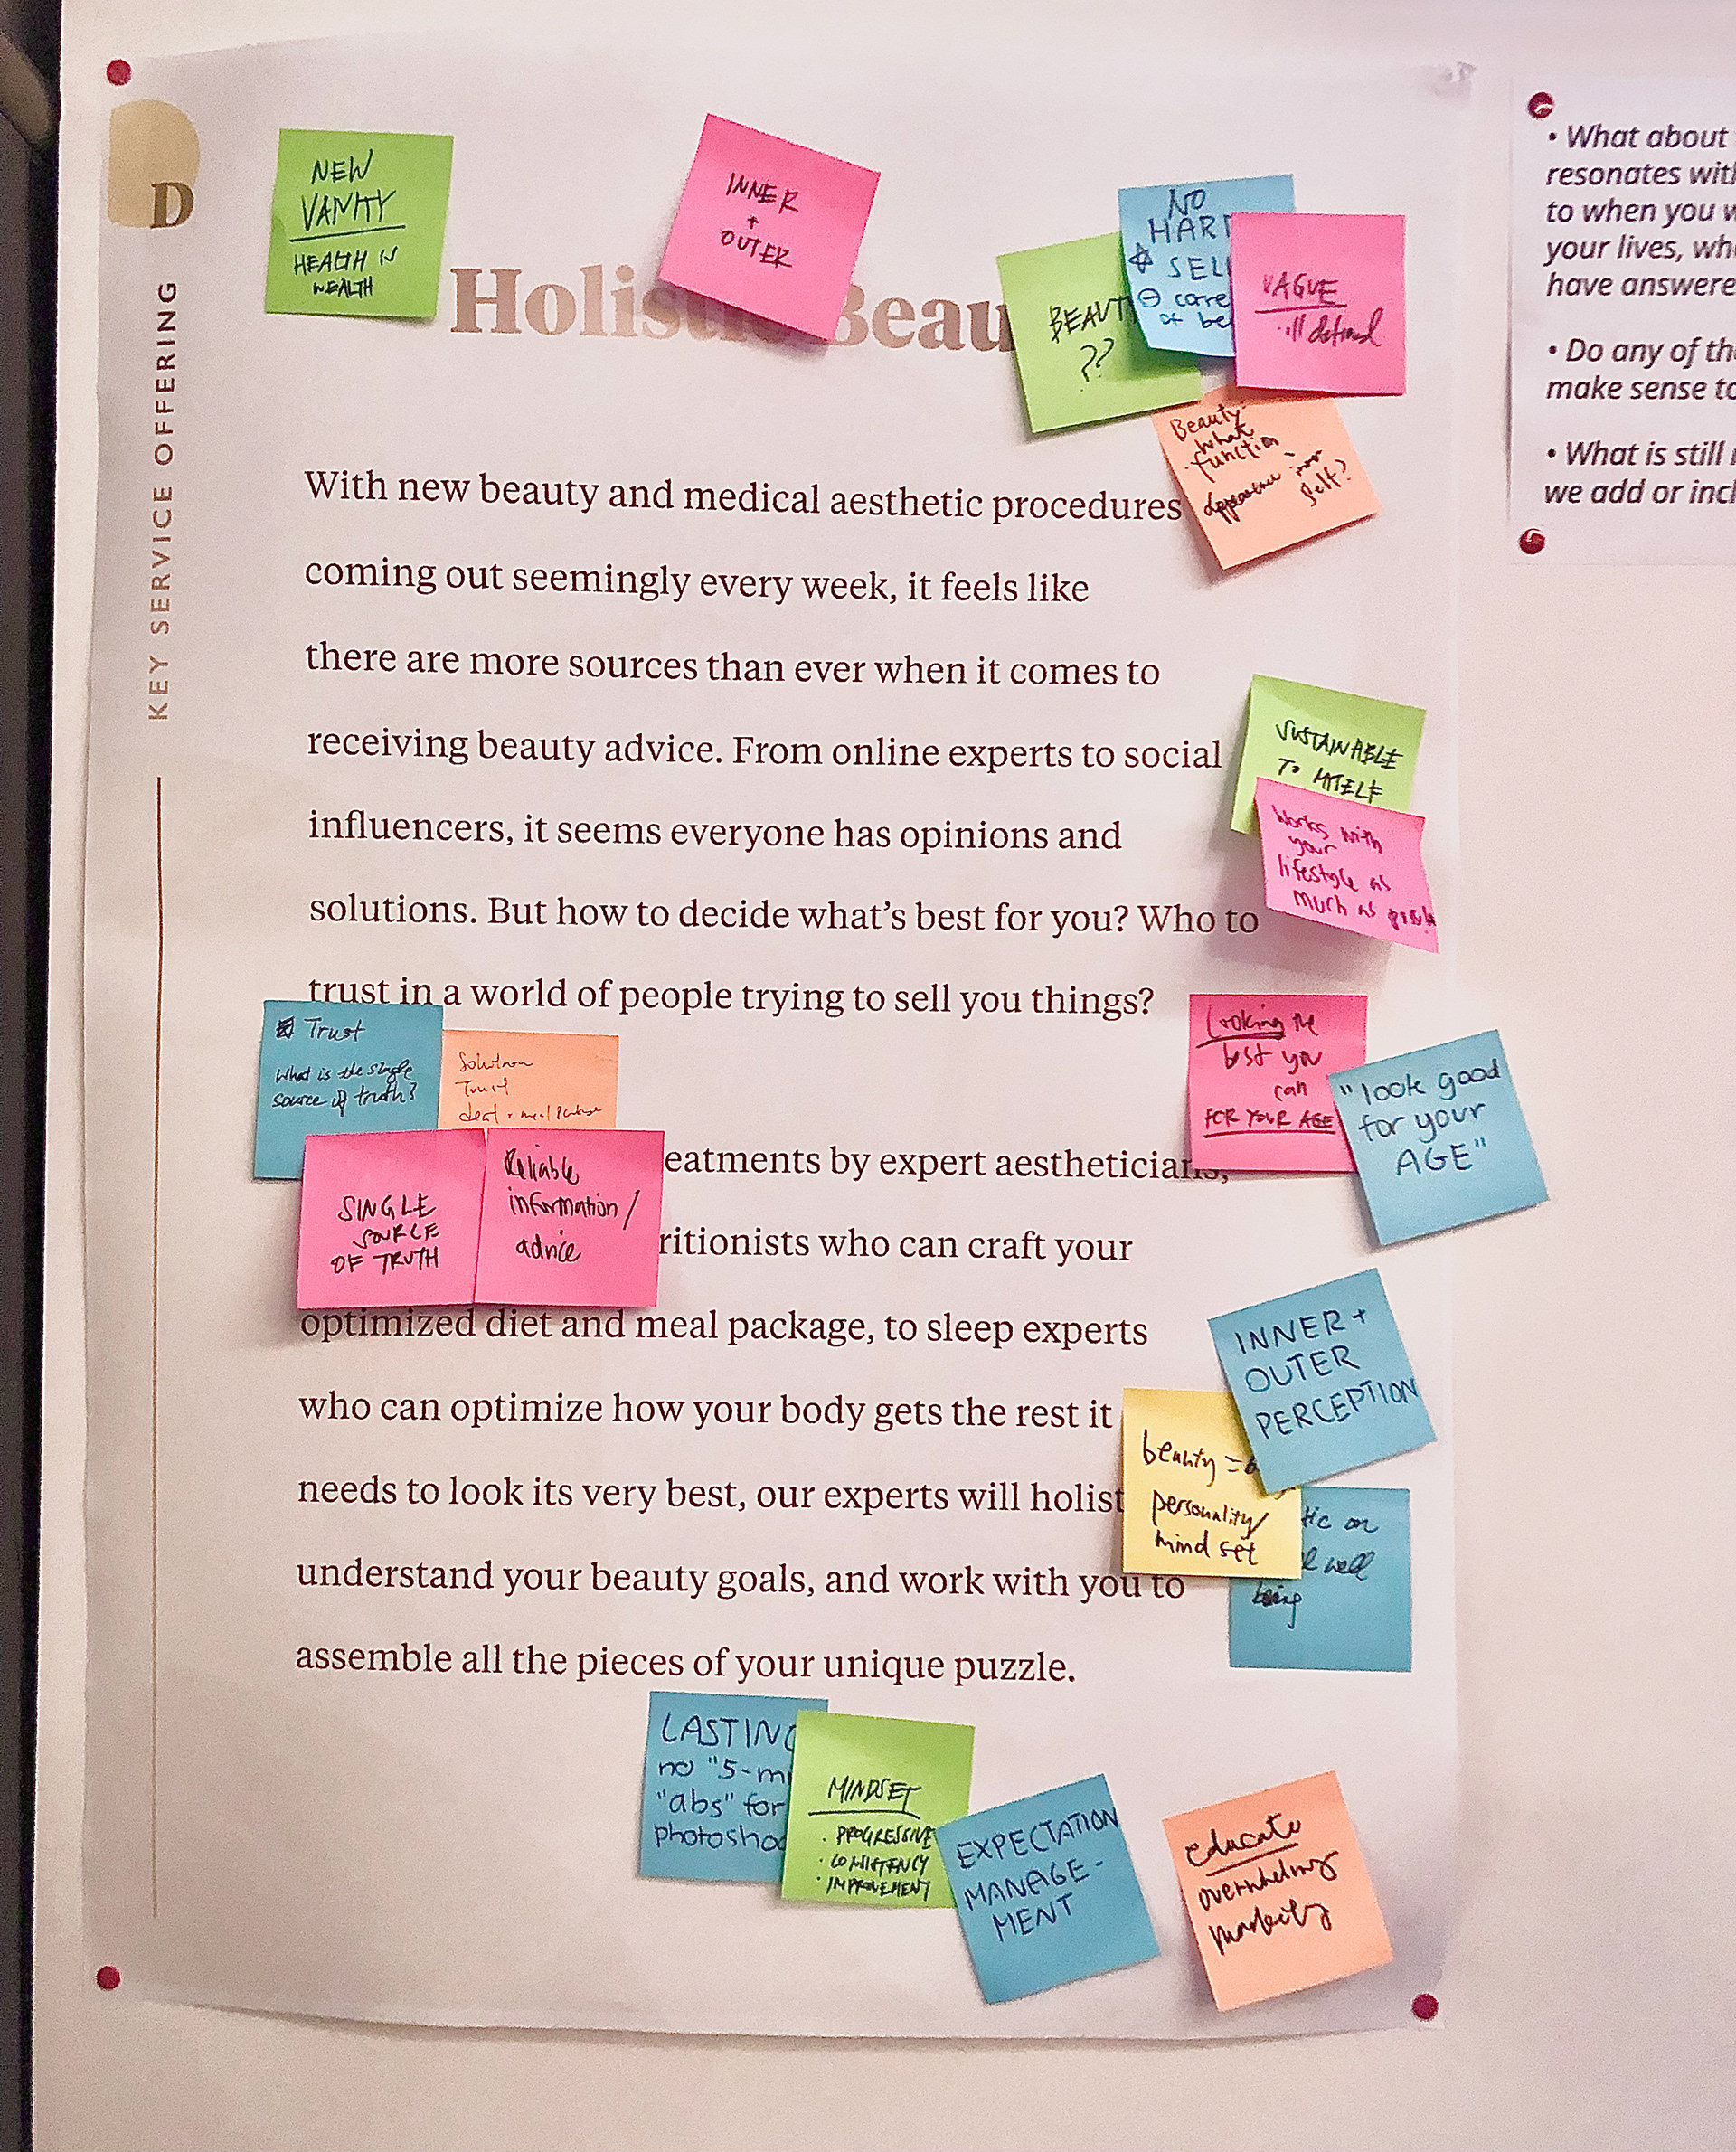 D
KEY SERVICE OFFERING
NEW
VANITY
HEALTH IS
WEALTH
INNER
+
OUTER
NO
HARD
SELL
corre
of be
VAGUE
ill defined
BEAUT
??
Beauty-
what
function
appearance
self?
Holistic Beau
With new beauty and medical aesthetic procedures
coming out seemingly every week, it feels like
there are more sources than ever when it comes to
receiving beauty advice. From online experts to social
influencers, it seems everyone has opinions and
solutions. But how to decide what's best for you? Who to
trust in a world of people trying to sell you things?
SUSTAINABLE
TO MYSELF
Works with
your
lifestyle as
much as
Trust
What is the single
source of truth?
Solution
Trust
SINGLE
SOURCE
OF TRUTH
Reliable
information/
advice
Looking the
best you
can
FOR YOUR AGE
"look good
for your
AGE"
eatments by expert aestheticians,
ritionists who can craft your
optimized diet and meal package, to sleep experts
who can optimize how your body gets the rest it
needs to look its very best, our experts will holist
understand your beauty goals, and work with you to
assemble all the pieces of your unique puzzle.
INNER +
OUTER
PERCEPTION
beauty =
personality/
mind set
tic on
well
being
LASTING
no "5-mi
"abs" for
photosho
MINDSET
· PROGRESSIVE
· CONSISTENCY
· IMPROVEMENT
EXPECTATION
MANAGE-
MENT
educate
overwhelming
• What about
resonates with
to when you w
your lives, wh
have answere
• Do any of th
make sense to
• What is still
we add or incl